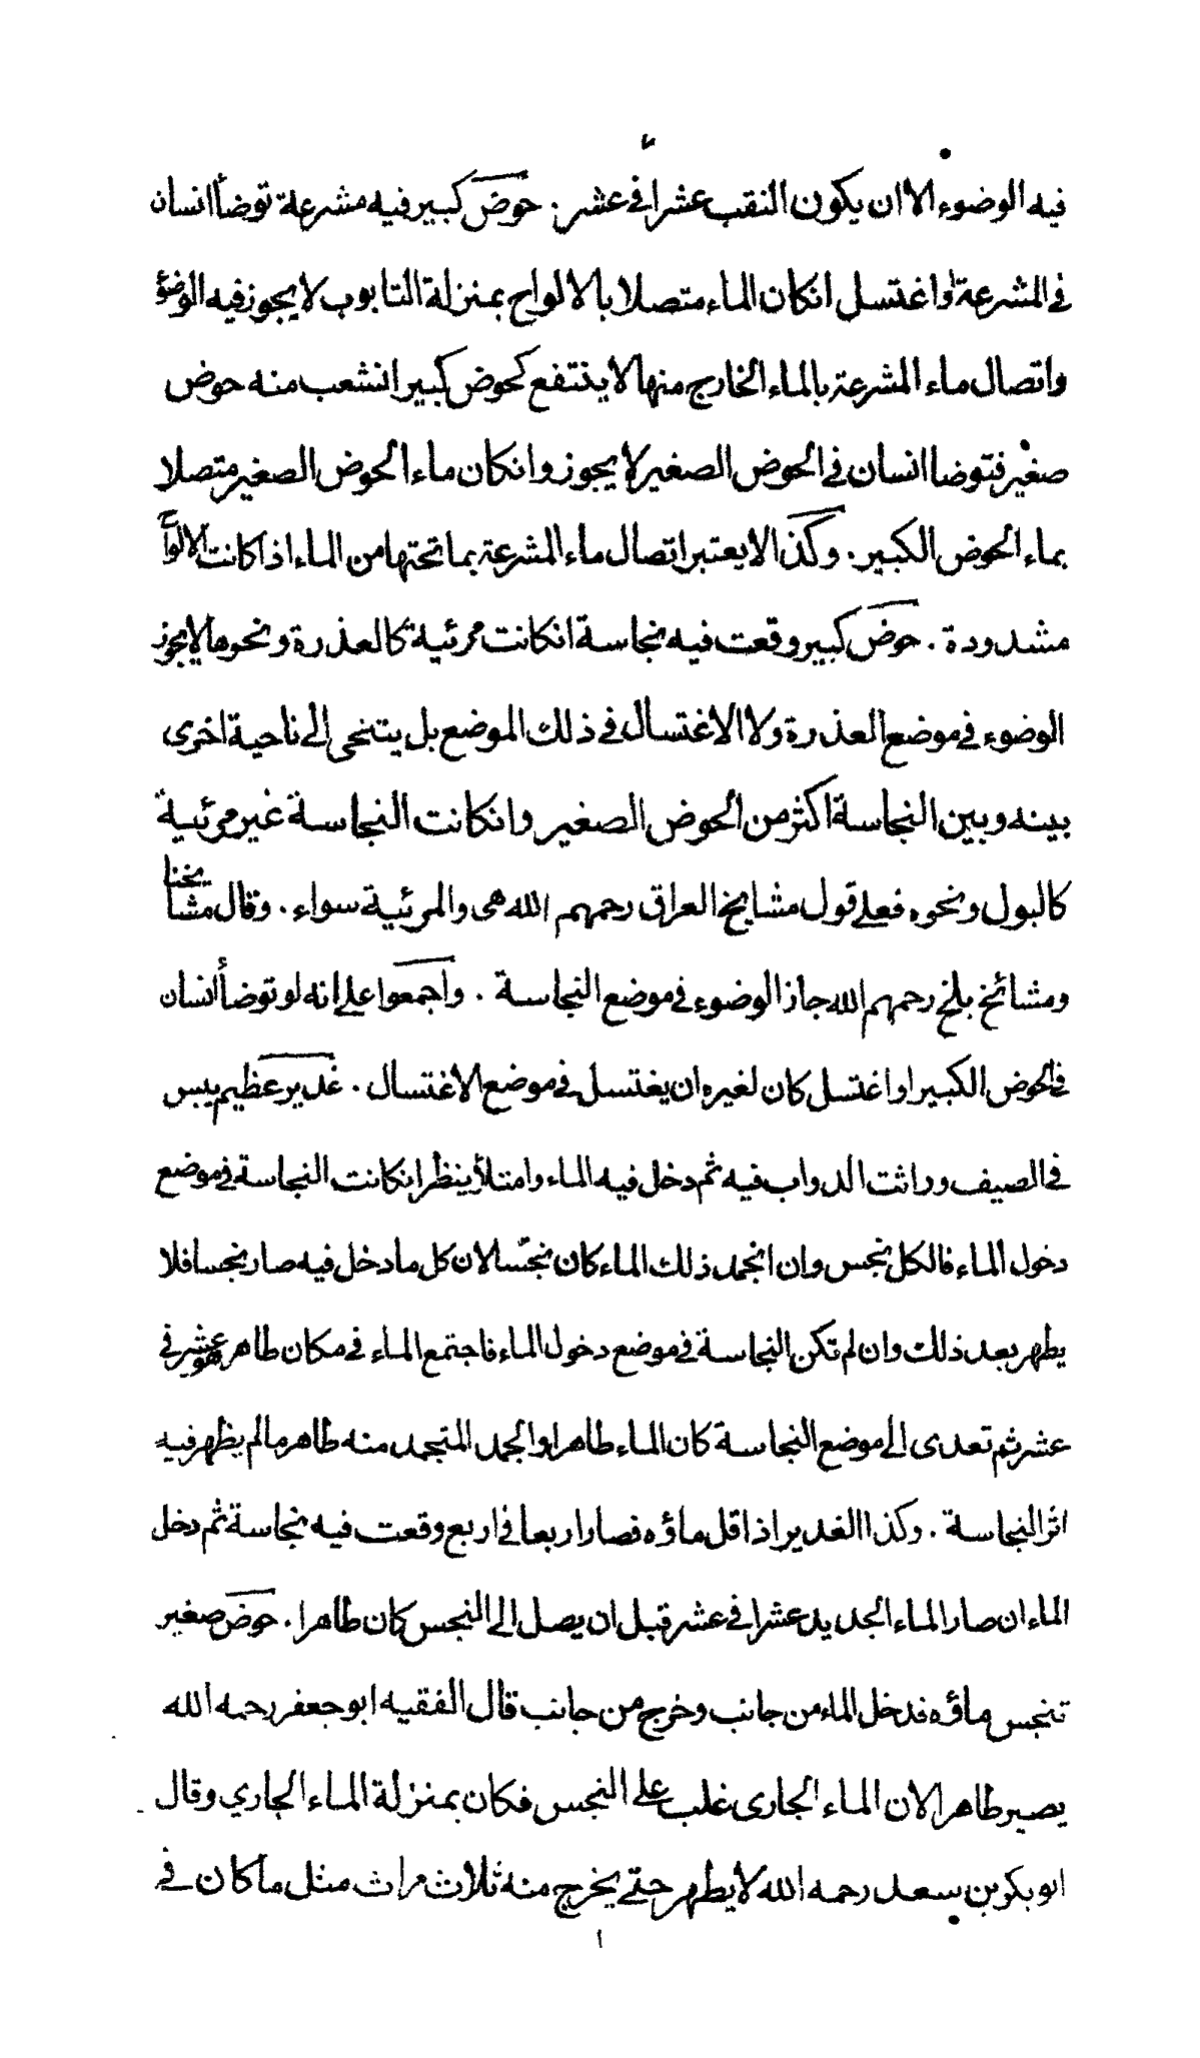 فيه الوضوء الا ان يكون النقب عشرا في عشر . حوض كبير فيه مشرعة توضأ انسان
في المشرعة او اغتسل انكان الماء متصلا بالالواح بمنزلة التابوب لا يجوز فيه الوضؤ
واتصال ماء المشرعة بالماء الخارج منها لا ينتفع كحوض كبير انشعب منه حوض
صغير فتوضا انسان في الحوض الصغير لا يجوز وانكان ماء الحوض الصغير متصلا
بماء الحوض الكبير . وكذا لا يعتبر اتصال ماء المشرعة بما تحتها من الماء اذا كانت الالواح
مشدودة . حوض كبير وقعت فيه نجاسة انكانت مرئية كالعذرة ونحوها لا يجوز
الوضوء في موضع العذرة ولا الاغتسال في ذلك الموضع بل يتنحى الى ناحية اخرى
بينه وبين النجاسة اكثر من الحوض الصغير وانكانت النجاسة غير مرئية
كالبول ونحوه فعلى قول مشايخ العراق رحمهم الله هى والمرئية سواء . وقال مشايخنا
ومشائخ بلخ رحمهم الله جاز الوضوء في موضع النجاسة . واجمعوا على انه لو توضأ انسان
في الحوض الكبير او اغتسل كان لغيره ان يغتسل في موضع الاغتسال . غدير عظيم يبس
في الصيف وراثت الدواب فيه ثم دخل فيه الماء وامتلأ ينظر انكانت النجاسة في موضع
دخول الماء فالكل نجس وان انجمد ذلك الماء كان نجسا لان كل ما دخل فيه صار نجسا فلا
يطهر بعد ذلك وان لم تكن النجاسة في موضع دخول الماء فاجتمع الماء في مكان طاهر هو عشر في
عشر ثم تعدى الى موضع النجاسة كان الماء طاهرا والجمد المنجمد منه طاهر ما لم يظهر فيه
اثر النجاسة . وكذا الغدير اذا قل ماؤه فصار اربعا في اربع وقعت فيه نجاسة ثم دخل
الماء ان صار الماء الجديد عشرا في عشر قبل ان يصل الى النجس كان طاهرا . حوض صغير
تنجس ماؤه فدخل الماء من جانب وخرج من جانب قال الفقيه ابو جعفر رحمه الله
يصير طاهرا لان الماء الجارى غلب على النجس فكان بمنزلة الماء الجاري وقال
ابو بكر بن سعد رحمه الله لا يطهر حتى يخرج منه ثلاث مرات مثل ما كان في